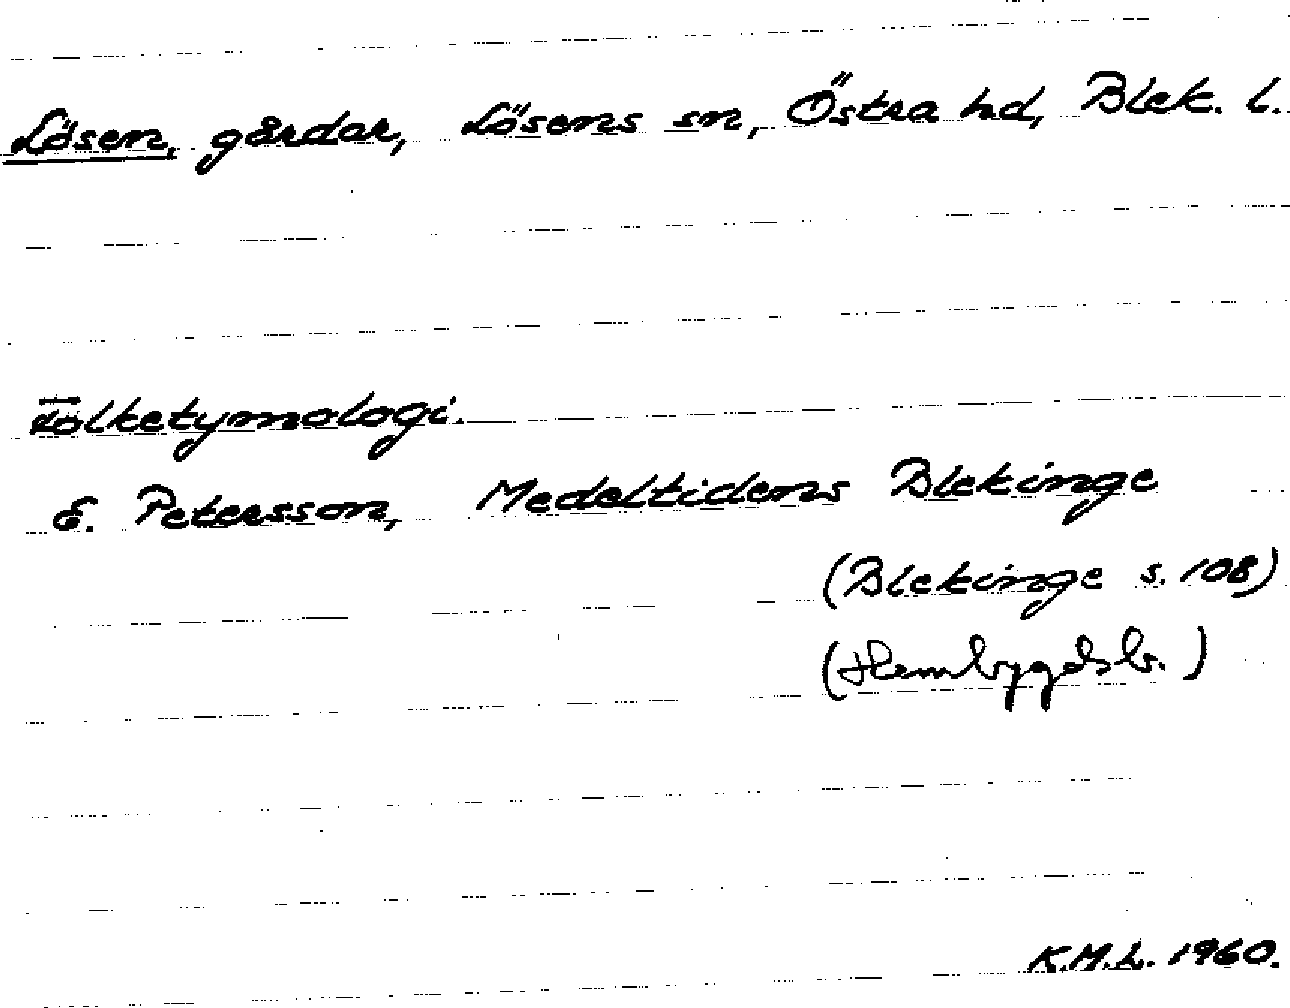 Lösen, gårdar, Lösens sn, Östra hd, Blek. l.
Folketymologi.
E. Petersson, Medeltidens Blekinge
(Blekinge s. 108)
(Hembygdsb.)
K.M.L. 1960.